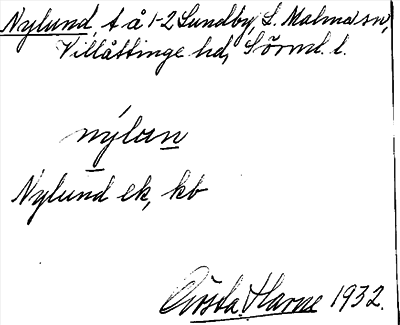 Nylund, t å 1-2 Sundby, L. Malma sn,
Villåttinge hd, Sörml. l.
nýlan
Nylund ek, kb
Gösta Harne 1932.